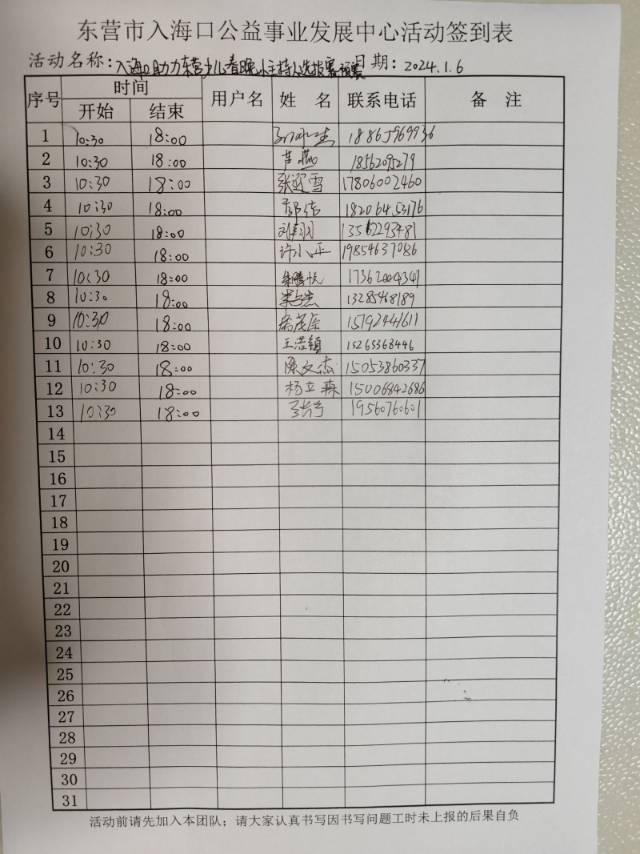 东营市入海口公益事业发展中心活动签到表
活动名称：入海口助力东营少儿春晚小主持人选拔赛预赛 日期：2024.1.6
序号 时间 用户名 姓 名 联系电话 备 注
开始 结束
1 10:30 18:00 18865969936
2 10:30 18:00 芦燕 18562095279
3 10:30 18:00 张迎雪 17806002460
4 10:30 18:00 18206453176
5 10:30 18:00
6 10:30 18:00 许小平 19854637086
7 10:30 18:00
8 10:30 18:00 13285468189
9 10:30 18:00 15192441611
10 10:30 18:00 王浩颖 15265368446
11 10:30 18:00 陈文杰 15053860337
12 10:30 18:00 杨立森 15006842686
13 10:30 18:00 19560760601
14
15
16
17
18
19
20
21
22
23
24
25
26
27
28
29
30
31
活动前请先加入本团队；请大家认真书写因书写问题工时未上报的后果自负